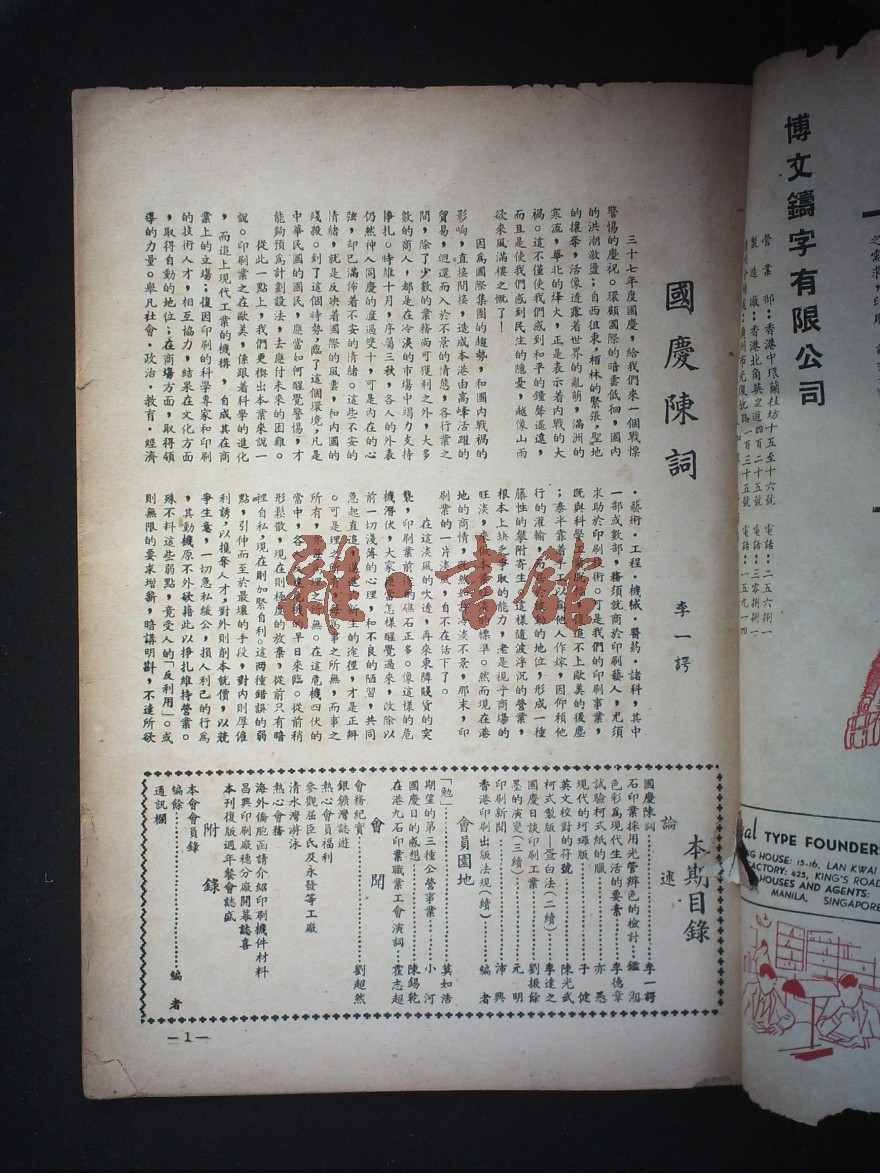 國慶陳詞
李一諤
三十七年度國慶，給我們來一個戰慄
警惕的慶祝。環顧國際的暗雲低徊，國內
的洪潮激盪；自西徂東，栢林的緊張，聖地
的攘奪，活像透露着世界的亂萌，滿洲的
寒流，華北的烽火，正是表示着內戰的大
禍。這不僅使我們感到和平的鐘聲遙遠，
而且是使我們感到民生的隱憂，越像山雨
欲來風滿樓之慨了！
因為國際集團的趨勢，和國內戰禍的
影响，直接間接，造成本港由高峰活躍的
貿易，迴還而入於不景的情態，各行業之
間，除了少數的業務尚可獲利之外，大多
數的商人，都是在冷淡的市場中竭力支持
掙扎。時維十月，序屬三秋，各人的外表
仍然伸人同慶的渡過雙十，可是內在的心
強，却已滿佈着不安的情緒。這些不安的
情緒，就是反映着國際的風雲，和內國的
殘殺。到了這個時勢，臨了這個環境，凡是
中華民國的國民，應當如何醒覺警惕，才
能夠預為計劃設法，去應付未來的困難。
從此一點上，我們更楔出本業來說一
說。印刷業之在歐美，係跟着科學的進化
，而追上現代工業的機構，自成其在商
業上的立場；復因印刷的科學專家和印刷
的技術人才，相互協力，結果在文化方面
，取得自動的地位；在商場方面，取得領
導的力量。舉凡社會・政治・教育・經濟
・藝術・工程・機械・醫药・諸科，其中
一部或數部，務須就商於印刷藝人，尤須
求助於印刷技術。可是我們的印刷事業，
既與科學工業脫節，復追不上歐美的後塵
；泰半靠着手工以為他人作嫁，因仰賴他
行的灌輸，而居於被動的地位，形成一種
藤性的攀附寄生。這樣隨波浮沉的營業，
根本上缺乏爭取的能力，老是視乎商場的
旺淡，來做本業旺淡的標準。然而現在港
地的商情，既然如此冷淡不景，那末，印
刷業的一片淡風，自不在話下了。
在這淡風的吹透，再來東隣賤貨的突
襲，印刷業前途的礁石正多。像這樣的危
機潛伏，大家應當怎樣醒覺過來，改除以
前一切淺薄的心理，和不良的陋習，共同
急起直追，邁進新生的途徑，才是正辦
。可是理之所有，每為事之所無，而事之
所有，亦每為理之所無。在這危機四伏的
當中，各人越覺危機的早日來臨。從前稍
形鬆散，現在則極度的放棄，從前只有暗
裡自私，現在則加緊自利。這兩種錯誤的弱
點，引伸而至於最壞的手段，對內則厚催
利誘，以攏奪人才，對外則削本就價，以競
爭生意，一切急私緩公，損人利己的行為
，其動機原不外欲藉此以掙扎維持營業。
殊不料這些弱點，竟受人的「反利用」。或
則無限的要求增薪，暗講明斟，不達所欲
本期目錄
論述
國慶陳詞…………李一諤
石印業採用光管辨色的檢討…鑑湘
色彩為現代生活的要素…李德章
試驗柯式紙的臘…………亦愚
現代的珂瓏版…………子健
英文校對的符號…………陳光武
柯式製版—蛋白法（二續）…李達之
國慶日談印刷工業…………劉振餘
墨的演變（三續）…………元明
印刷新聞…………沛興
香港印刷出版法規（續）…………編者
會員園地
「勉」…………莫如浩
期望的第三種公營事業…………小河
國慶日的感想…………陳錫乾
在港九石印業職業工會演詞…霍志超
會聞
會務紀實…………劉超然
銀鑛灣誌遊
熱心會員福利
參觀屈臣氏及永發等工廠
清水灣游泳
熱心會務
海外僑胞函請介紹印刷機件材料
昌興印刷廠穗分廠開幕誌喜
本刊復版週年餐會誌盛
附錄
本會會員錄
編餘…………編者
通訊欄
—1—
雜・書館
博文鑄字有限公司
營業部：香港中環蘭桂坊十五至十六號 電話：二五六捌一
製造廠：香港北角英皇道四百二十五號 電話：三零捌捌一
TYPE FOUNDERS
HOUSE: 15-16, LAN KWAI
FACTORY: 425, KING'S ROAD
HOUSES AND AGENTS:
MANILA, SINGAPORE